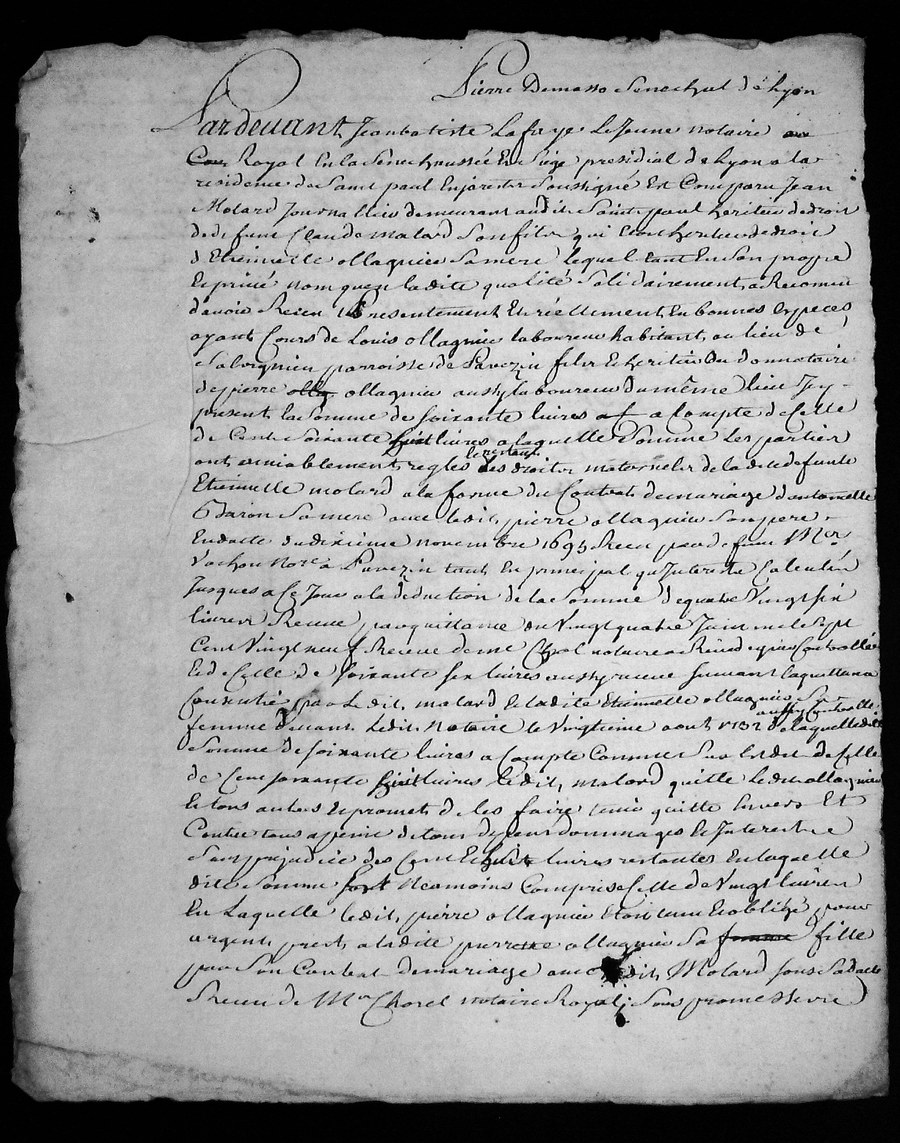 Pierre Demasso Senechal de Lyon
Pardevant Jean batiste Lafaye Le Jeune notaire
Royal En la Sénéchaussée Et Siege presidial de Lyon a la
residence de Saint paul En Jarest Soussigné Est Comparu Jean
Molard Journallier demeurant audit Saint paul heritier de droit
de deffunt Claude molard Son fils qui etoit heritier de droit
d Etiennette ollagnier Sa mere lequel tant En Son propre
Et privé nom qu'en ladite qualité Solidairement, a Reconnu
d'avoir Receu presentement Et réellement En bonnes Especes
ayant Cours de Louis ollagnier laboureur habitant au lieu de
Salvignieu parroisse de Pavezin fils Et heritier donnataire
de pierre ollagnier aussy laboureur du même lieu Jcy
present la Somme de Soixante livres a Compte de Celle
de Cent Soixante huit livres a laquelle Somme Les partier
ont amiablement regles les droits maternels de ladite defunte
Etiennette molard a la forme du Contrat de mariage d'antoinette
Baron Sa mere avec ledit pierre ollagnier Son pere
En datte du dixieme novembre 1695 Receu par defunt Mer
Vachon Nore a Pavezin tant En principal qu'Interests Calculés
Jusques a Ce Jour a la deduction de la Somme de quatre Vingt six
livres Receue par quittance du Vingt quatre Juin mil Sept
Cent Vingt neuf Receue de me Chol notaire
Et de Celle de Soixante six livres aussy receue Suivant la quittance
Consentie par Ledit molard Et ladite Etiennette ollagnier Sa
femme devant Ledit Notaire le Vingtieme aout 1732 aussy Controllé de laquelle dite
Somme de Soixante livres a Compte Comme Sus Est dit de Celle
de Cent Soixante huit livres Ledit molard quitte Ledit ollagnier
Et tous autres Et promet de les faire tenir quitte Envers Et
Contre tous a peine de tous depens dommages Et Interests
Sans prejudice des Cent Et huit livres restantes En laquelle
dite Somme Sont Neamoins Comprise Celle de Vingt livres
En Laquelle ledit pierre ollagnier Etoit tenu Et obligé pour
argent presté a ladite pierrette ollagnier Sa femme fille
par Son Contrat de mariage avec Ledit Molard Sous Sa datte
Receu de Me Chorel notaire Royal; Sous promesse